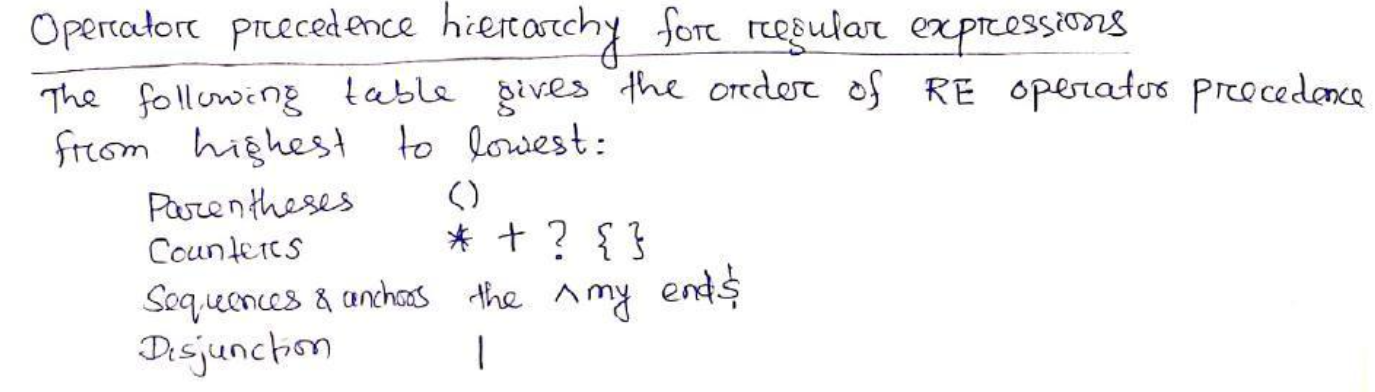 Operator precedence hierarchy for regular expressions
The following table gives the order of RE operator precedence
from highest to lowest:
Parentheses ()
Counters * + ? { }
Sequences & anchors the ^my end$
Disjunction |